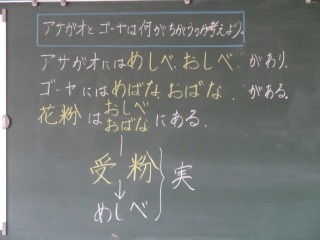 アサガオとゴーヤは何がちがうのか考えよう。
アサガオにはめしべ、おしべ、があり、
ゴーヤにはめばな、おばな、がある。
花粉はおしべ
おばなにある。
受粉
↓
めしべ
実